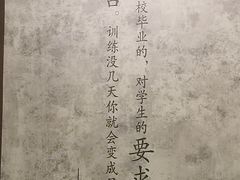 校毕业的，对学生的要求
。训练没几天你就会变成